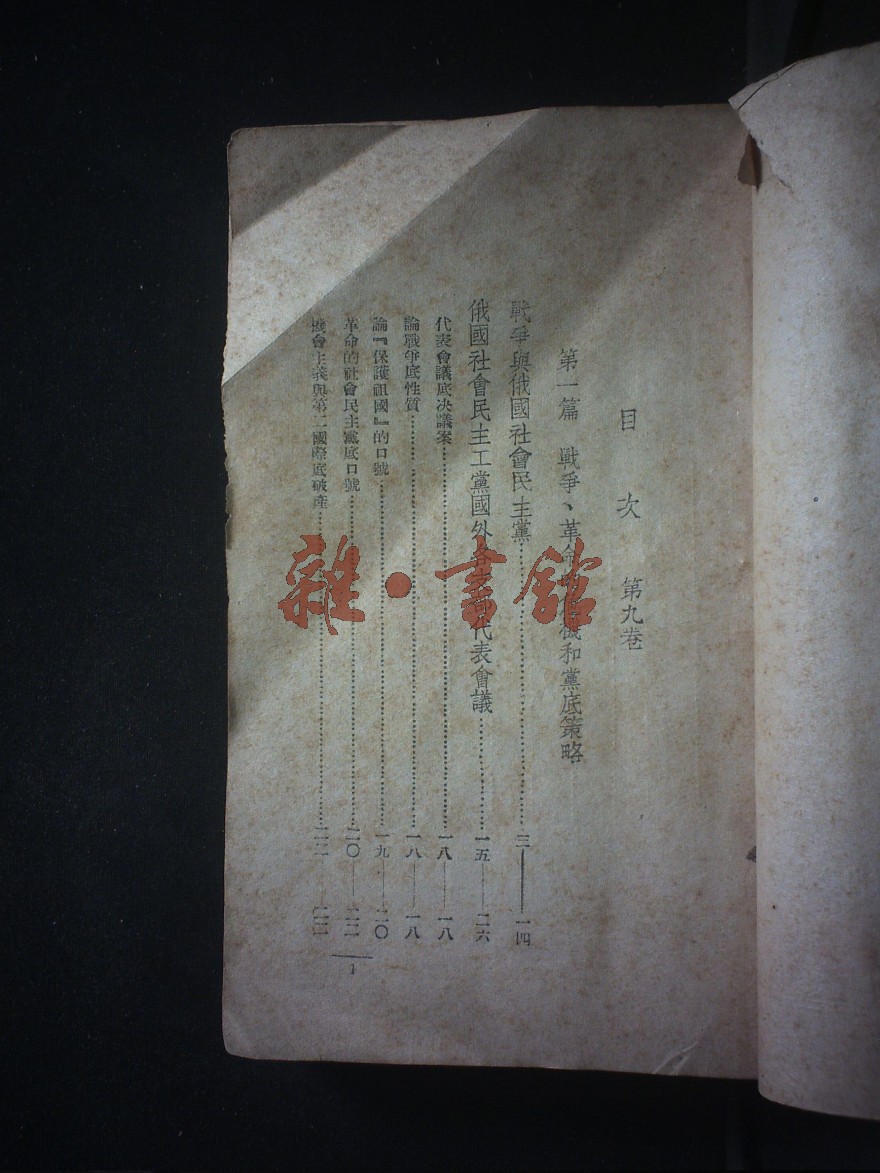 目次 第九卷
第一篇 戰爭、革命的危機和黨底策略
戰爭與俄國社會民主黨……三——一四
俄國社會民主工黨國外各支部代表會議……一五——二六
代表會議底决議案……一八——一八
論戰爭底性質……一八——一八
論『保護祖國』的口號……一九——二〇
革命的社會民主黨底口號……二〇——二二
機會主義與第二國際底破產……二二——
1
雜·書館